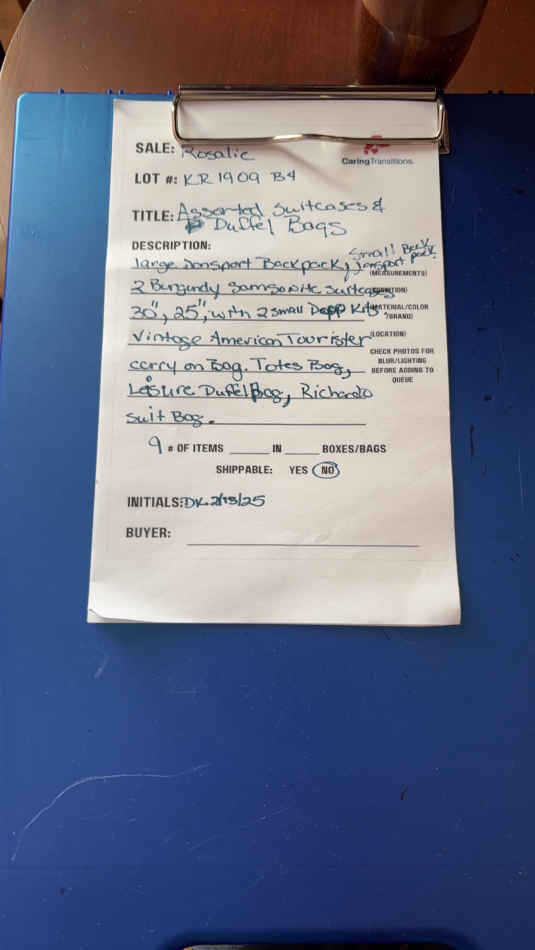 SALE: Rosalie
CaringTransitions.
LOT #: KR1909 B4
TITLE: Assorted Suitcases &
Duffel Bags
DESCRIPTION:
large Jansport Backpack, Small Back
Jansport pack,
(MEASUREMENTS)
2 Burgundy Samsonite Suitcases
(CONDITION)
30", 25", with 2 small Dopp Kits,
(MATERIAL/COLOR
/BRAND)
Vintage American Tourister
(LOCATION)
carry on Bag. Totes Bag,
CHECK PHOTOS FOR
BLUR/LIGHTING
BEFORE ADDING TO
QUEUE
Leisure Duffel Bag, Richardo
suit Bag.
9 # OF ITEMS ______ IN _____ BOXES/BAGS
SHIPPABLE: YES NO
INITIALS: DK 2/13/25
BUYER: